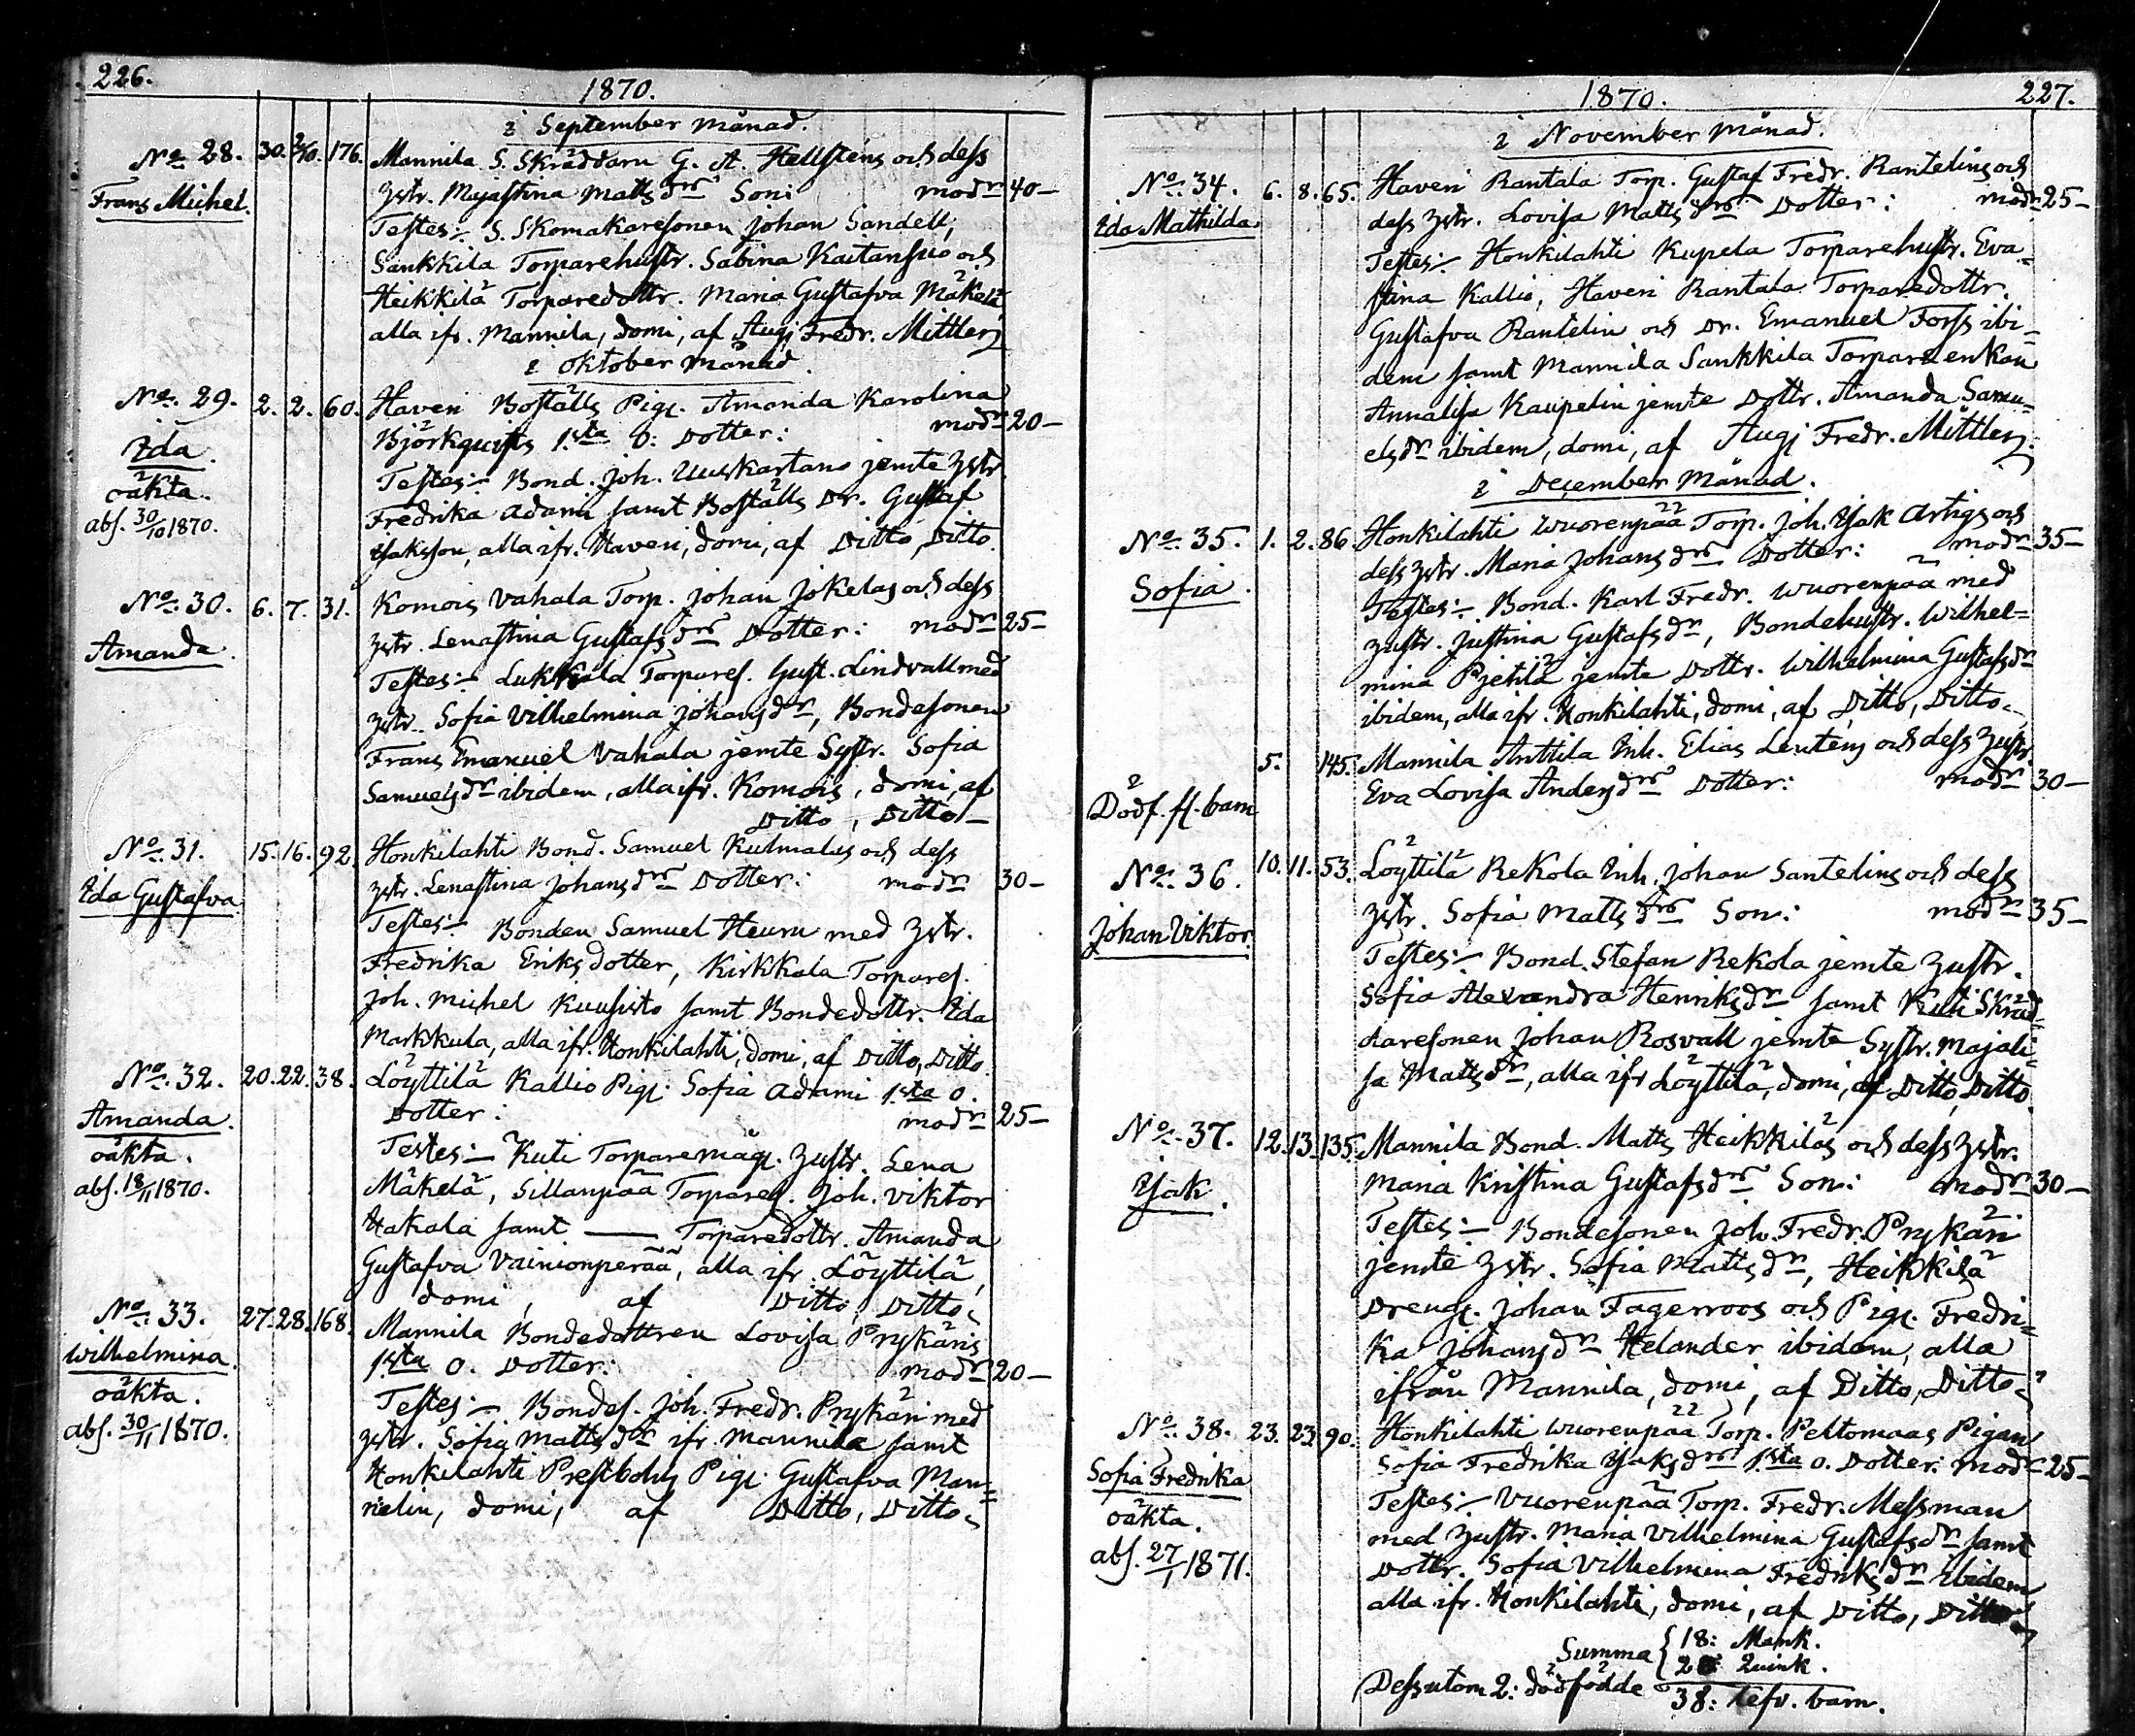 226.
1870.
i September månad.
No 28. 30. 2/10. 176. Mannila S. Skräddarn G. A. Hellstens och dess
Frans Michel. hstr. Majastina Matts drs Son: modr 40—
Testes:— S. Skomakaresonen Johan Sandell,
Sankkila Torparehustr. Sabina Kaitansuo och
Heikkilä Torparedottr. Maria Gustafva Mäkelä
alla ifr. Mannila, domi, af Augj Fredr. Mittler
i Oktober månad.
No. 29. 2. 2. 60. Haveri Boställs Pig. Amanda Karolina
Ida. Björkquists 1sta o: Dotter: modr 20—
oäkta. Testes:— Bond. Joh. Uuskartano jemte hstr
abs. 30/10 1870. Fredrika Adami samt Boställs Dr. Gustaf
Isaksson, alla ifr. Haveri, domi, af Ditto, Ditto.
No. 30. 6. 7. 31. Komois Vahala Torp. Johan Jokelas och dess
Amanda. hstr. Lenastina Gustafs drs Dotter: modr 25—
Testes:— Lukkala Torpares. Gust. Lindvall med
hstr. Sofia Vilhelmina Johans dr, Bondesonen
Frans Emanuel Vahala jemte Systr. Sofia
Samuels dr ibidem, alla ifr. Komois, domi, af
Ditto, Ditto—
No. 31. 15. 16. 92. Honkilahti Bond. Samuel Kulmalas och dess
Ida Gustafva hstr. Lenastina Johans drs Dotter: modr 30—
Testes:— Bonden Samuel Heuru med hstr.
Fredrika Eriksdotter, Kirkkala Torpares.
Joh. Michel Kuusisto samt Bondedottr. Ida
Markkula, alla ifr. Honkilahti, domi, af Ditto, Ditto.
No. 32. 20. 22. 38. Löyttilä Kallio Pig. Sofia Adami 1sta o.
Amanda. Dotter: modr 25—
oäkta. Testes:— Kuti Torparemåg. Hustr. Lena
abs. 18/11 1870. Mäkelä, Sillanpää Torpares. Joh. Viktor
Hakala samt —— Torparedottr. Amanda
Gustafva Vainionperää, alla ifr. Löyttilä,
domi, af Ditto, Ditto.
No. 33. 27. 28. 168. Mannila Bondedottren Lovisa Prykäris
Wilhelmina. 1sta o. Dotter: modr 20—
oäkta. Testes:— Bondes. Joh. Fredr. Prykäri med
abs. 30/11 1870. hstr. Sofia Matts dr ifr. Mannila samt
Honkilahti Prestbols Pig. Gustafva Man=
nelin, domi, af Ditto, Ditto.
1870. 227.
i November månad.
No. 34. 6. 8. 65. Haveri Rantala Torp. Gustaf Fredr. Rantelins och
Ida Mathilda dess hstr. Lovisa Matts drs Dotter: modr 25—
Testes:— Honkilahti Kupela Torparehustr. Eva=
stina Kallio, Haveri Rantala Torparedottr.
Gustafva Rantelin och Dr. Emanuel Forss ibi=
dem samt Mannila Sankkila Torpareenkan
Annalisa Kaupelin jemte Dottr. Amanda Samu=
els dr ibidem, domi, af Augj Fredr. Mittler.
i December Månad.
No. 35. 1. 2. 86. Honkilahti Wuorenpää Torp. Joh. Isak Artigs och
Sofia. dess hstr. Maria Johans drs Dotter: modr 35—
Testes:— Bond. Karl Fredr. Wuorenpää med
hustr. Justina Gustafs dr, Bondehustr. Wilhel=
mina Pjetilä jemte Dottr. Wilhelmina Gustafs dr
ibidem, alla ifr. Honkilahti, domi, af Ditto, Ditto.
5. 145. Mannila Anttila Inh. Elias Lenteus och dess hustr
Dödf. fl. barn Eva Lovisa Anders drs Dotter: modr 30—
No. 36. 10. 11. 53. Löyttilä Rekola Inh. Johan Santelins och dess
Johan Viktor. hstr. Sofia Matts drs Son: modr 35—
Testes:— Bond. Stefan Rekola jemte hustr.
Sofia Alexandra Henriks dr samt Kuti Skräd=
daresonen Johan Rosvall jemte Systr. Majali=
sa Matts dr, alla ifr Löyttilä, domi, af Ditto, Ditto.
No. 37. 12. 13. 135. Mannila Bond. Matts Heikkiläs och dess hstr.
Isak. Maria Kristina Gustafs drs Son: modr 30—
Testes:— Bondesonen Joh. Fredr. Prykäri
jemte hstr. Sofia Matts dr, Heikkilä
Dreng. Johan Fagerroos och Pig. Fredri=
ka Johans dr Helander ibidem, alla
ifrån Mannila, domi, af Ditto, Ditto.
No. 38. 23. 23. 90. Honkilahti Wuorenpää Torp. Peltomaas Pigan
Sofia Fredrika Sofia Fredrika Isaks drs 1sta o. Dotter: modr 25—
oäkta. Testes:— Vuorenpää Torp. Fredr. Messman
abs. 27/1 1871. med hustr. Maria Vilhelmina Gustafs dr samt
Dottr. Sofia Vilhelmina Fredriks dr ibidem
alla ifr. Honkilahti, domi, af Ditto, Ditto
Summa { 18: Mank.
20 Quink.
Dessutom 2: dödfödde 38: lefv. barn.